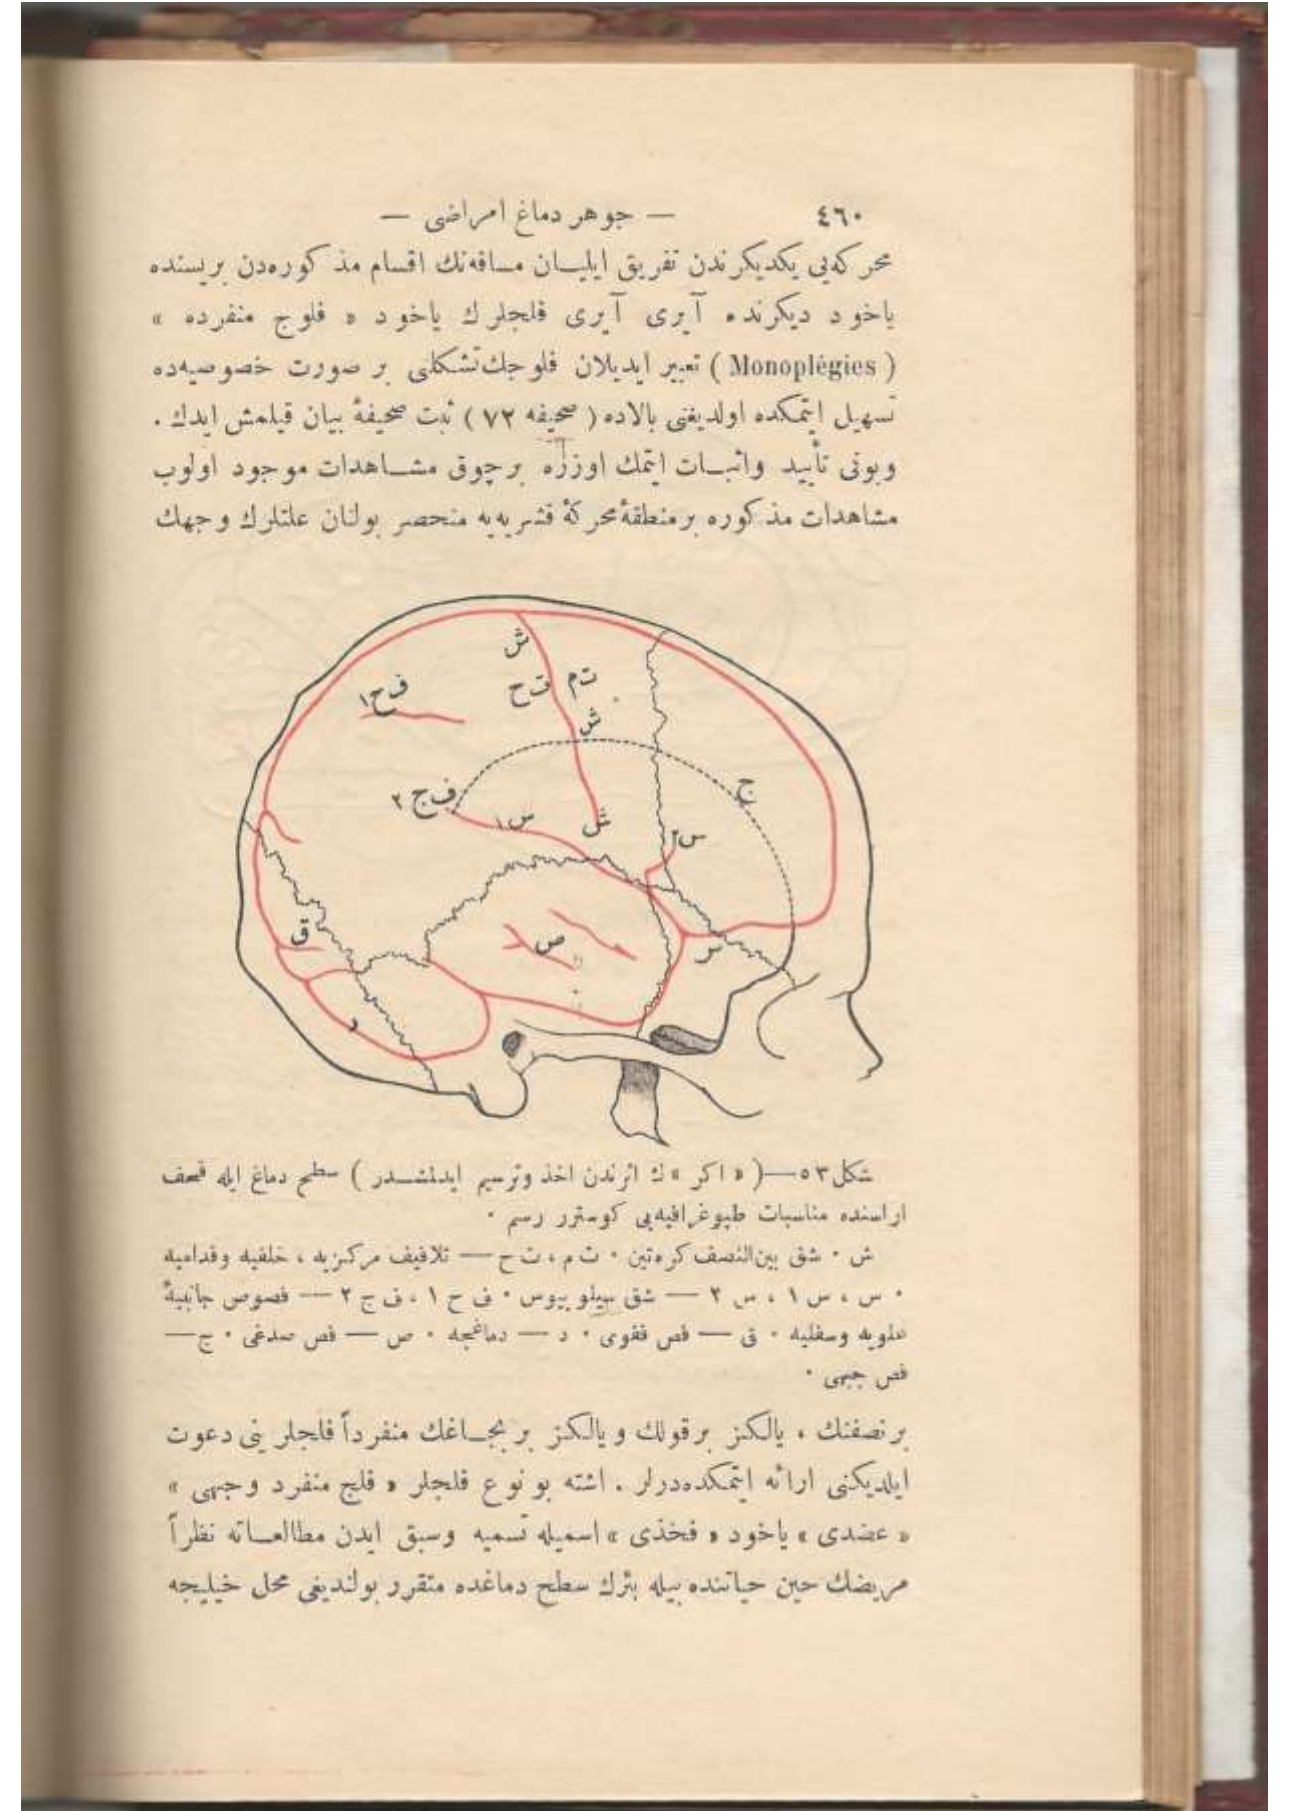 ٤٦٠
— جوهر دماغ امراضی —
محركه‌يی يكديكرندن تفريق ايليان مسافه‌نك اقسام مذكوره‌دن بريسنده
ياخود ديكرنده آيری آيری فلجلرك ياخود « فلوج منفرده »
( Monoplégies ) تعبير ايديلان فلوجك تشكلنی بر صورت خصوصيه‌ده
تسهيل ايتمكده اولديغنی بالاده ( صحيفه ٧٢ ) ثبت صحيفهٔ بيان قيلمش ايدك .
وبونی تأييد واثبات ايتمك اوزره بر چوق مشاهدات موجود اولوب
مشاهدات مذكوره بر منطقهٔ محركهٔ قشريه‌يه منحصر بولنان علتلرك وجهك
ش
ف ح ١
ت ح
ت م
ش
ج
ف ج ٢
س ١
ش
س ٢
ق
ص
س
د
شكل ٥٣ — ( « اكر » ك اثرندن اخذ وترسيم ايدلمشدر ) سطح دماغ ايله قحف
اراسنده مناسبات طپوغرافيه‌يی كوسترر رسم .
ش . شق بين‌النصف كره‌تين . ت م ، ت ح — تلافيف مركزيه ، خلفيه وقداميه
. س ، س ١ ، س ٢ — شق سيلويوس . ف ح ١ ، ف ج ٢ — فصوص جانبيهٔ
علويه وسفليه . ق — فص قفوی . د — دماغجه . ص — فص صدغی . ج —
فص جبهی .
بر نصفنك ، يالكز بر قولك ويالكز بر بجاغك منفرداً فلجلرينی دعوت
ايلديكنی ارائه ايتمكده‌درلر . اشته بو نوع فلجلر « فلج منفرد وجهی »
« عضدی » ياخود « فخذی » اسميله تسميه وسبق ايدن مطالعاته نظراً
مريضك حين حياتنده بيله بثرك سطح دماغده متقرر بولنديغی محل خيليجه